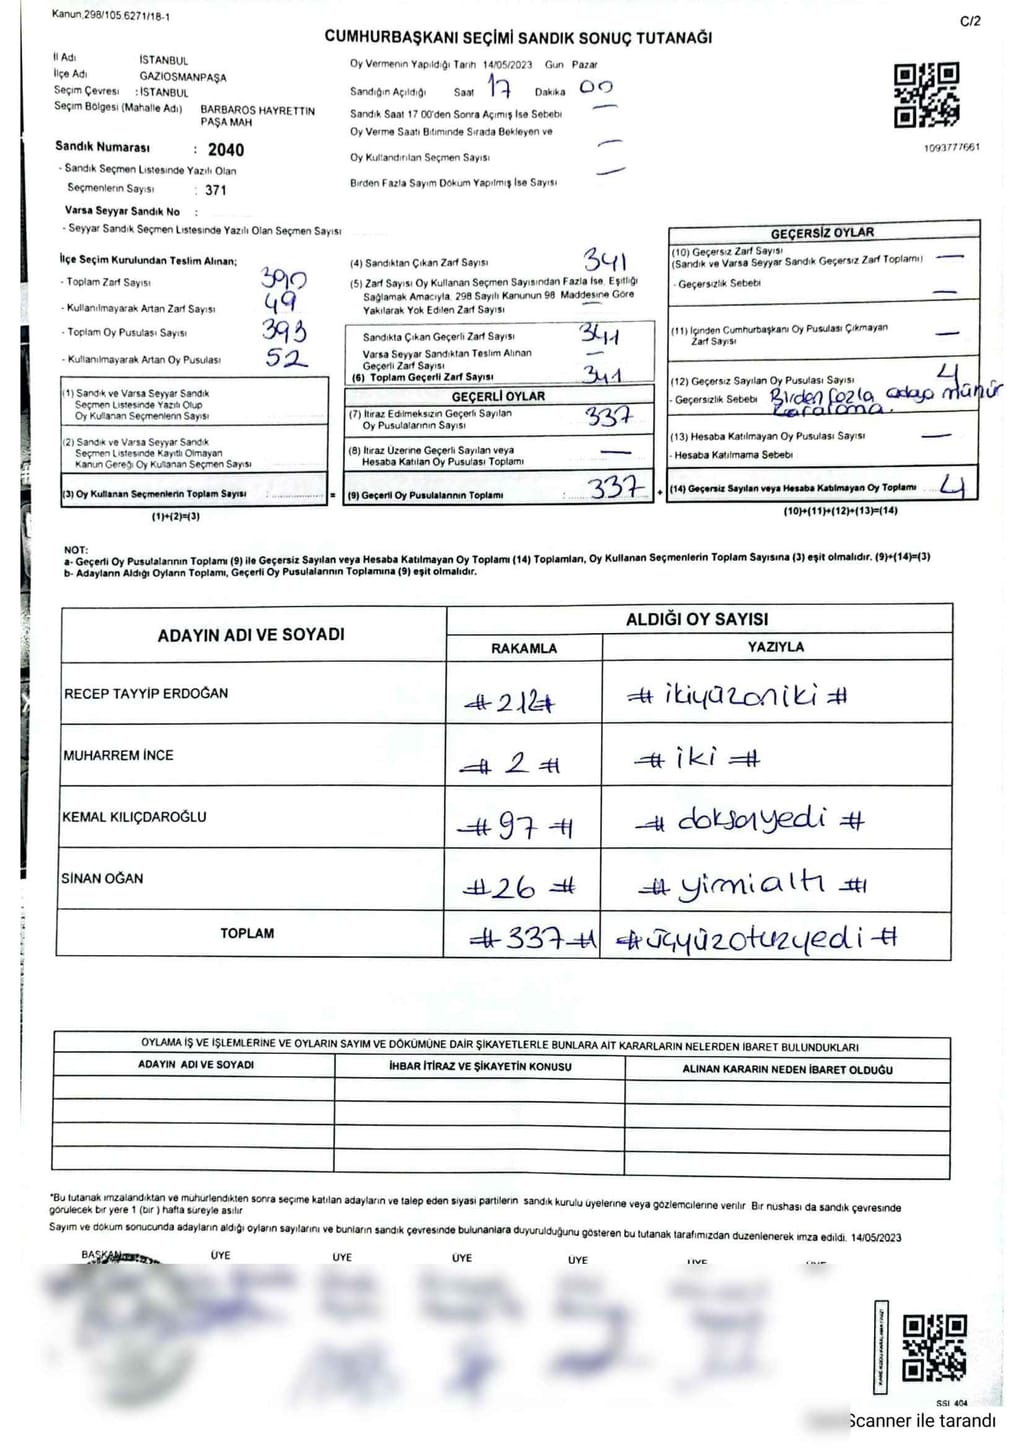 Kanun,298/105.6271/18-1
C/2
CUMHURBAŞKANI SEÇİMİ SANDIK SONUÇ TUTANAĞI
İl Adı İSTANBUL
İlçe Adı GAZİOSMANPAŞA
Seçim Çevresi : İSTANBUL
Seçim Bölgesi (Mahalle Adı) BARBAROS HAYRETTİN
PAŞA MAH
Sandık Numarası : 2040
- Sandık Seçmen Listesinde Yazılı Olan
Seçmenlerin Sayısı : 371
Varsa Seyyar Sandık No :
- Seyyar Sandık Seçmen Listesinde Yazılı Olan Seçmen Sayısı
Oy Vermenin Yapıldığı Tarih 14/05/2023 Gün Pazar
Sandığın Açıldığı Saat 17 Dakika 00
Sandık Saat 17 00'den Sonra Açımış İse Sebebi —
Oy Verme Saati Bitiminde Sırada Bekleyen ve
Oy Kullandırılan Seçmen Sayısı —
Birden Fazla Sayım Döküm Yapılmış İse Sayısı —
1093777661
İlçe Seçim Kurulundan Teslim Alınan;
- Toplam Zarf Sayısı 390
- Kullanılmayarak Artan Zarf Sayısı 49
- Toplam Oy Pusulası Sayısı 393
- Kullanılmayarak Artan Oy Pusulası 52
(1) Sandık ve Varsa Seyyar Sandık
Seçmen Listesinde Yazılı Olup
Oy Kullanan Seçmenlerin Sayısı
(2) Sandık ve Varsa Seyyar Sandık
Seçmen Listesinde Kayıtlı Olmayan
Kanun Gereği Oy Kullanan Seçmen Sayısı
(3) Oy Kullanan Seçmenlerin Toplam Sayısı : .................. =
(1)+(2)=(3)
(4) Sandıktan Çıkan Zarf Sayısı 341
(5) Zarf Sayısı Oy Kullanan Seçmen Sayısından Fazla İse, Eşitliği
Sağlamak Amacıyla, 298 Sayılı Kanunun 98 Maddesine Göre
Yakılarak Yok Edilen Zarf Sayısı —
Sandıkta Çıkan Geçerli Zarf Sayısı 341
Varsa Seyyar Sandıktan Teslim Alınan
Geçerli Zarf Sayısı —
(6) Toplam Geçerli Zarf Sayısı 341
GEÇERLİ OYLAR
(7) İtiraz Edilmeksizin Geçerli Sayılan
Oy Pusulalarının Sayısı 337
(8) İtiraz Üzerine Geçerli Sayılan veya
Hesaba Katılan Oy Pusulası Toplamı —
(9) Geçerli Oy Pusulalarının Toplamı : 337 +
GEÇERSİZ OYLAR
(10) Geçersiz Zarf Sayısı
(Sandık ve Varsa Seyyar Sandık Geçersiz Zarf Toplamı) —
- Geçersizlik Sebebi —
(11) İçinden Cumhurbaşkanı Oy Pusulası Çıkmayan
Zarf Sayısı —
(12) Geçersiz Sayılan Oy Pusulası Sayısı 4
- Geçersizlik Sebebi Birden fazla adaya mühür
(13) Hesaba Katılmayan Oy Pusulası Sayısı —
- Hesaba Katılmama Sebebi
(14) Geçersiz Sayılan veya Hesaba Katılmayan Oy Toplamı 4
(10)+(11)+(12)+(13)=(14)
NOT:
a- Geçerli Oy Pusulalarının Toplamı (9) ile Geçersiz Sayılan veya Hesaba Katılmayan Oy Toplamı (14) Toplamları, Oy Kullanan Seçmenlerin Toplam Sayısına (3) eşit olmalıdır. (9)+(14)=(3)
b- Adayların Aldığı Oyların Toplamı, Geçerli Oy Pusulalarının Toplamına (9) eşit olmalıdır.
ADAYIN ADI VE SOYADI ALDIĞI OY SAYISI
RAKAMLA YAZIYLA
RECEP TAYYİP ERDOĞAN #212# # ikiyüzoniki #
MUHARREM İNCE # 2 # # iki #
KEMAL KILIÇDAROĞLU #97 # # doksanyedi #
SİNAN OĞAN #26 # # yirmialtı #
TOPLAM #337# #üçyüzotuzyedi #
OYLAMA İŞ VE İŞLEMLERİNE VE OYLARIN SAYIM VE DÖKÜMÜNE DAİR ŞİKAYETLERLE BUNLARA AİT KARARLARIN NELERDEN İBARET BULUNDUKLARI
ADAYIN ADI VE SOYADI İHBAR İTİRAZ VE ŞİKAYETİN KONUSU ALINAN KARARIN NEDEN İBARET OLDUĞU
*Bu tutanak imzalandıktan ve mühürlendikten sonra seçime katılan adayların ve talep eden siyasi partilerin sandık kurulu üyelerine veya gözlemcilerine verilir Bir nushası da sandık çevresinde
görülecek bir yere 1 (bir ) hafta süreyle asılır
Sayım ve döküm sonucunda adayların aldığı oyların sayılarını ve bunların sandık çevresinde bulunanlara duyurulduğunu gösteren bu tutanak tarafımızdan düzenlenerek imza edildi. 14/05/2023
BAŞKAN ÜYE ÜYE ÜYE ÜYE ÜYE
SSI 404
Scanner ile tarandı